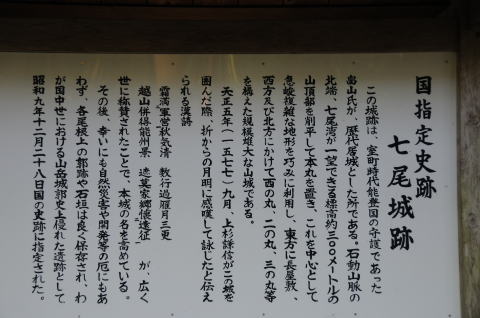 国指定史跡
七尾城跡
この城跡は、室町時代能登国の守護であった
畠山氏が、歴代居城とした所である。石動山脈の
北端、七尾湾が一望できる標高約三〇〇メートルの
山頂部を削平して本丸を置き、これを中心として
急峻複雑な地形を巧みに利用し、東方に長屋敷、
西方及び北方にかけて西の丸、二の丸、三の丸等
を構えた規模雄大な山城である。
天正五年(一五七七)九月、上杉謙信がこの城を
囲んだ際、折からの月明に感嘆して詠じたと伝え
られる漢詩
霜満軍営秋気清 数行過雁月三更
越山併得能州景 遮莫家郷懐遠征 が、広く
世に称賛されたことで、本城の名を高めている。
その後、幸いにも自然災害や開発等の厄にもあ
わず、各尾根上の郭跡や石垣は良く保存され、わ
が国中世における山岳城郭史上優れた遺跡として
昭和九年十二月二十八日国の史跡に指定された。